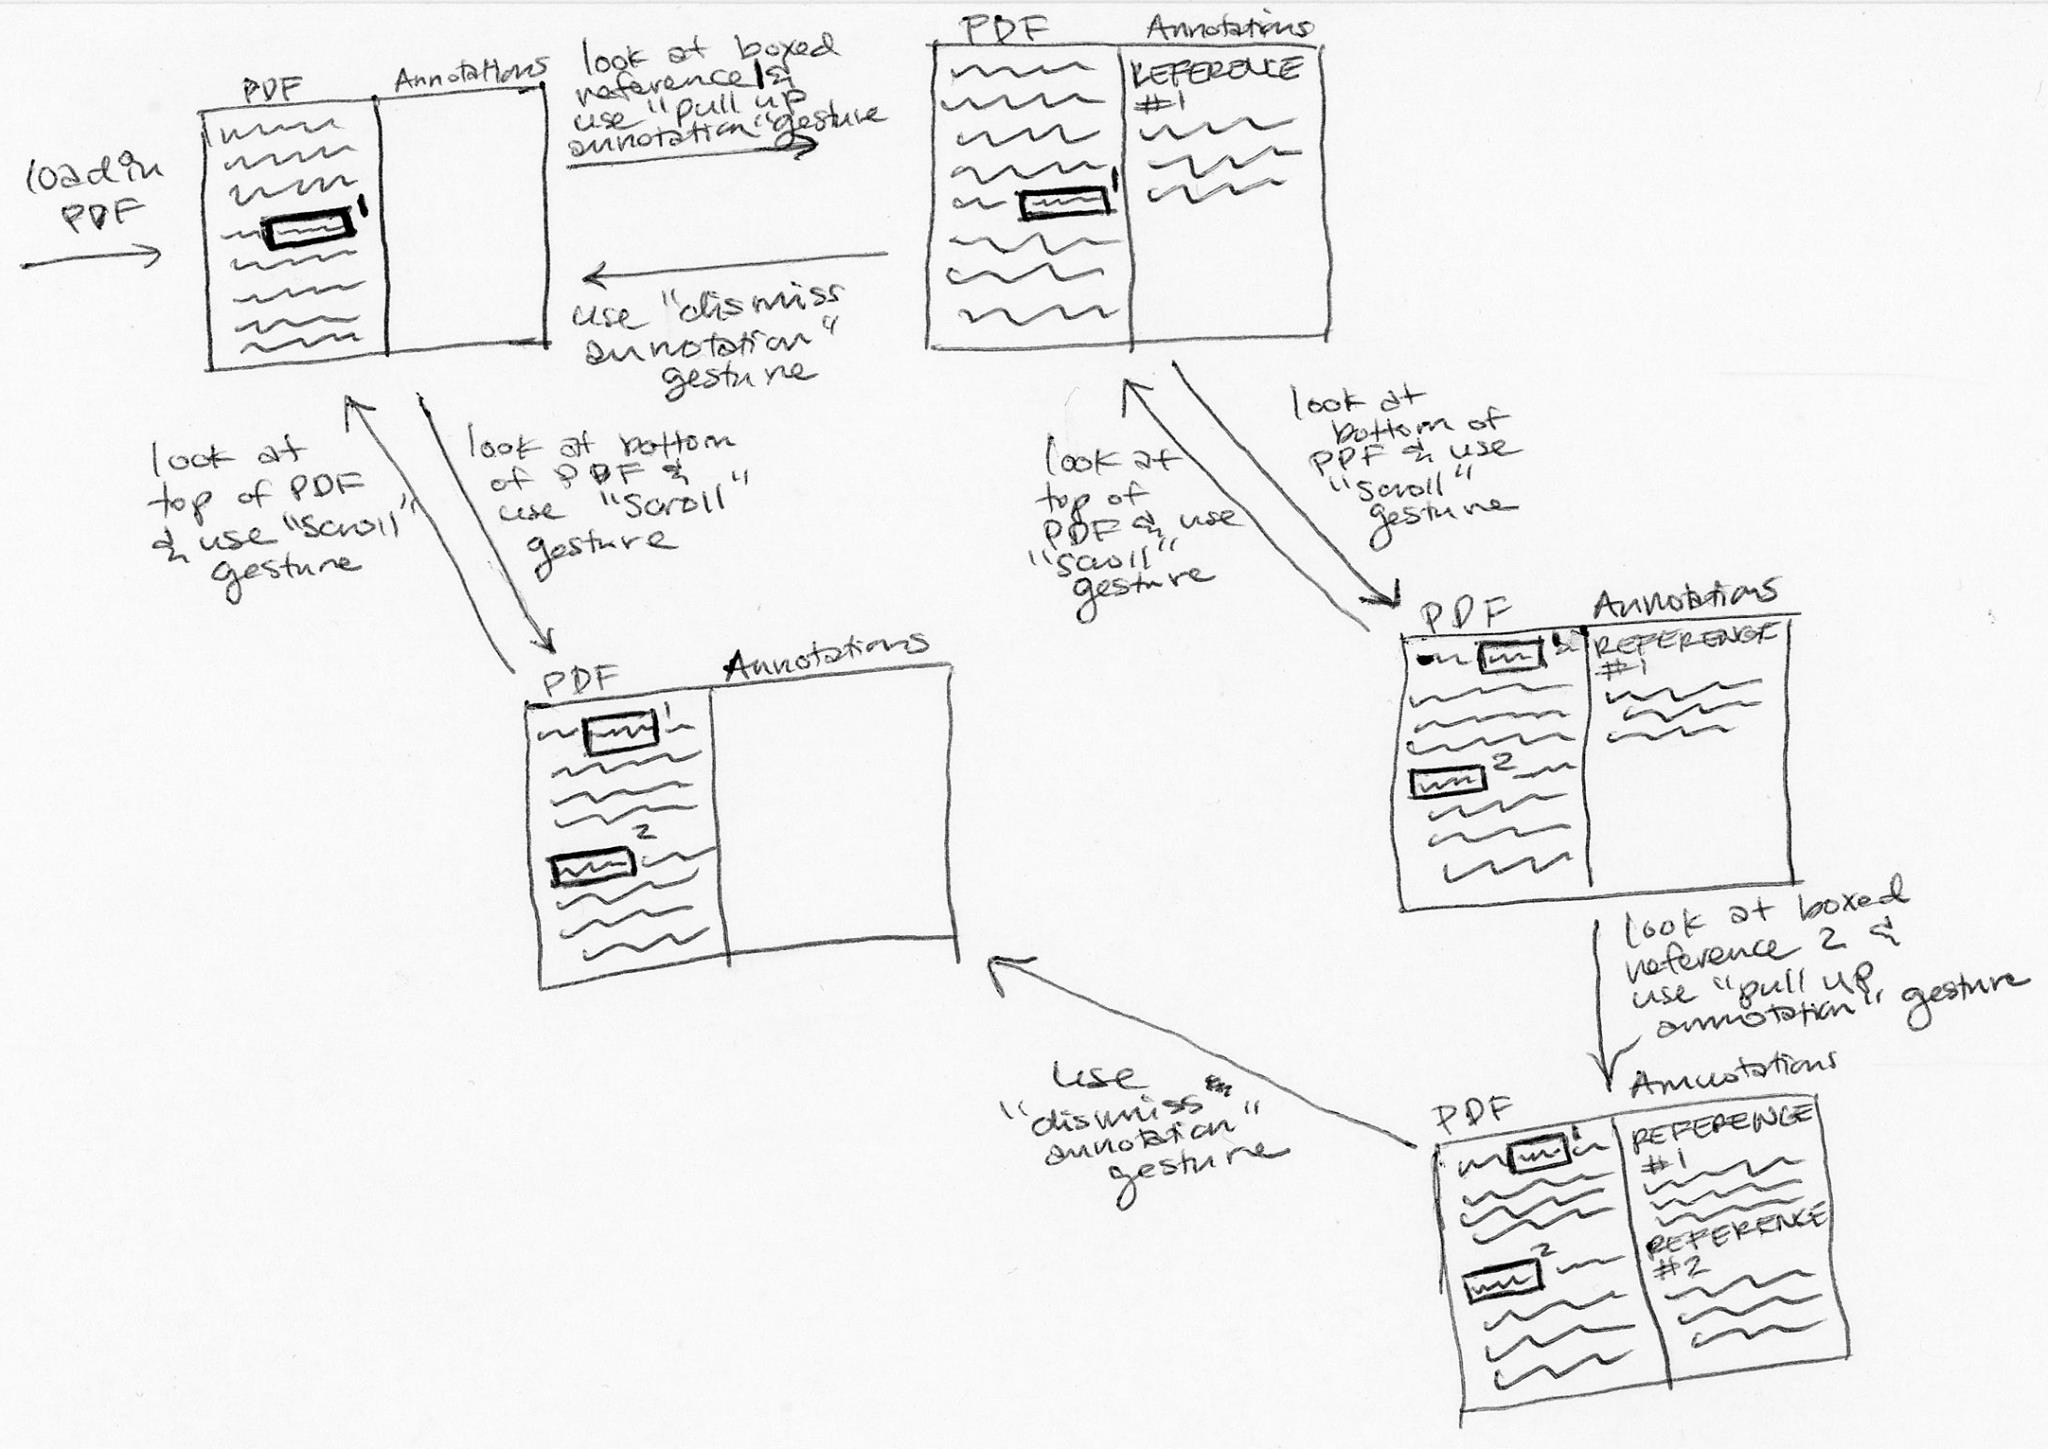 load in
PDF
PDF
Annotations
1
look at boxed
reference 1 &
use "pull up
annotation" gesture
PDF
Annotations
REFERENCE
#1
1
use "dismiss
annotation"
gesture
look at
top of PDF
& use "scroll"
gesture
look at bottom
of PDF &
use "scroll"
gesture
look at
top of
PDF & use
"scroll"
gesture
look at
bottom of
PDF & use
"scroll"
gesture
PDF
Annotations
1
2
PDF
Annotations
REFERENCE
#1
2
look at boxed
reference 2 &
use "pull up
annotation" gesture
use
"dismiss
annotation"
gesture
PDF
Annotations
1
2
REFERENCE
#1
REFERENCE
#2